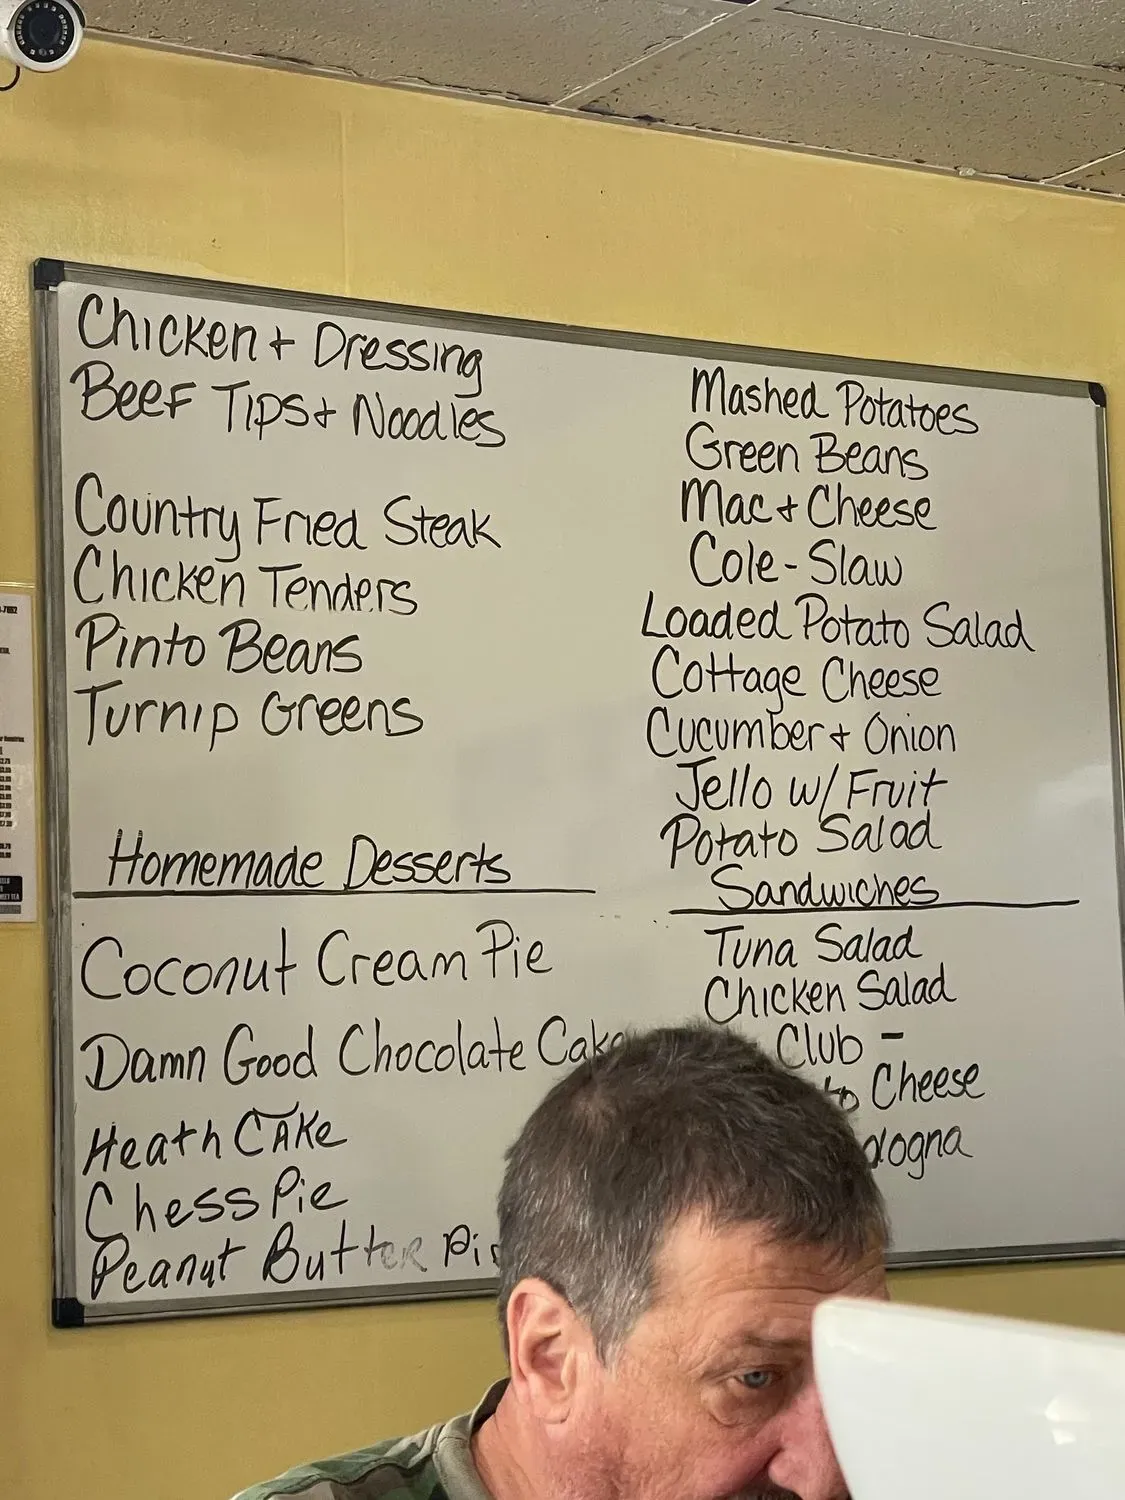 Chicken + Dressing
Beef Tips + Noodles
Country Fried Steak
Chicken Tenders
Pinto Beans
Turnip Greens
Homemade Desserts
Coconut Cream Pie
Damn Good Chocolate Cake
Heath Cake
Chess Pie
Peanut Butter Pie
Mashed Potatoes
Green Beans
Mac + Cheese
Cole-Slaw
Loaded Potato Salad
Cottage Cheese
Cucumber + Onion
Jello w/ Fruit
Potato Salad
Sandwiches
Tuna Salad
Chicken Salad
Club -
Cheese